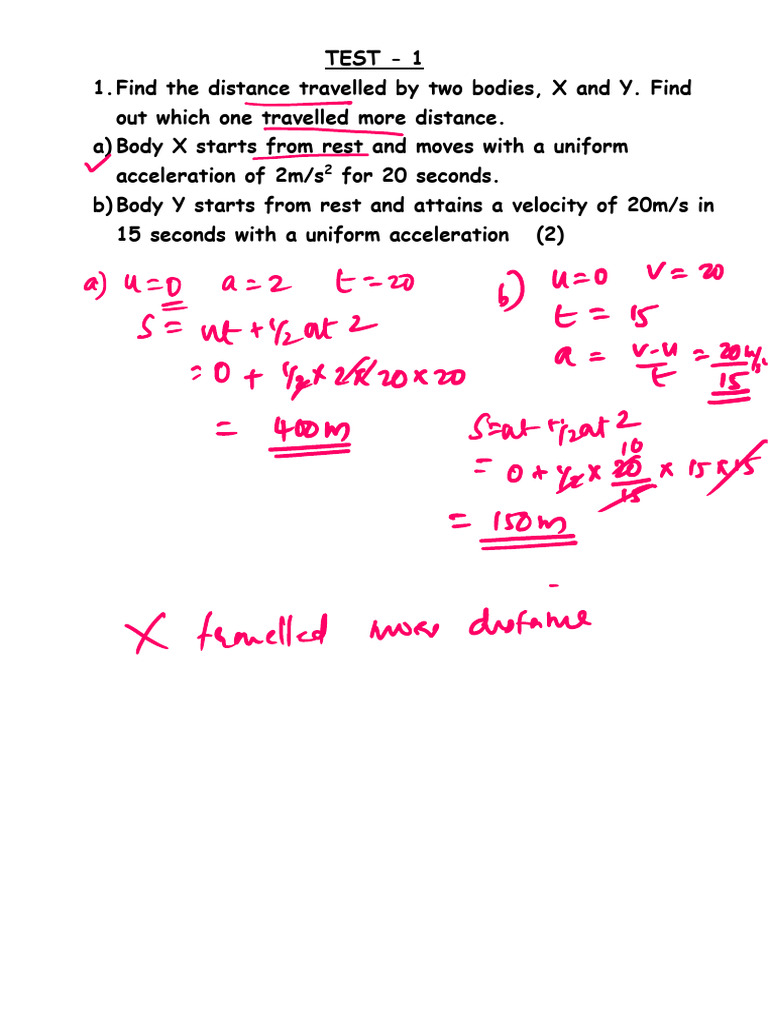 TEST - 1
1. Find the distance travelled by two bodies, X and Y. Find
out which one travelled more distance.
a) Body X starts from rest and moves with a uniform
acceleration of 2m/s² for 20 seconds.
b) Body Y starts from rest and attains a velocity of 20m/s in
15 seconds with a uniform acceleration (2)
a) u=0 a=2 t=20
S = ut + 1/2 at 2
= 0 + 1/2 × 2 × 20 × 20
= 400m
b) u=0 v=20
t = 15
a = v-u/t = 20 m/s/15
S=at + 1/2 at 2
10
= 0 + 1/2 × 20/15 × 15 × 15
= 150m
X travelled more distance